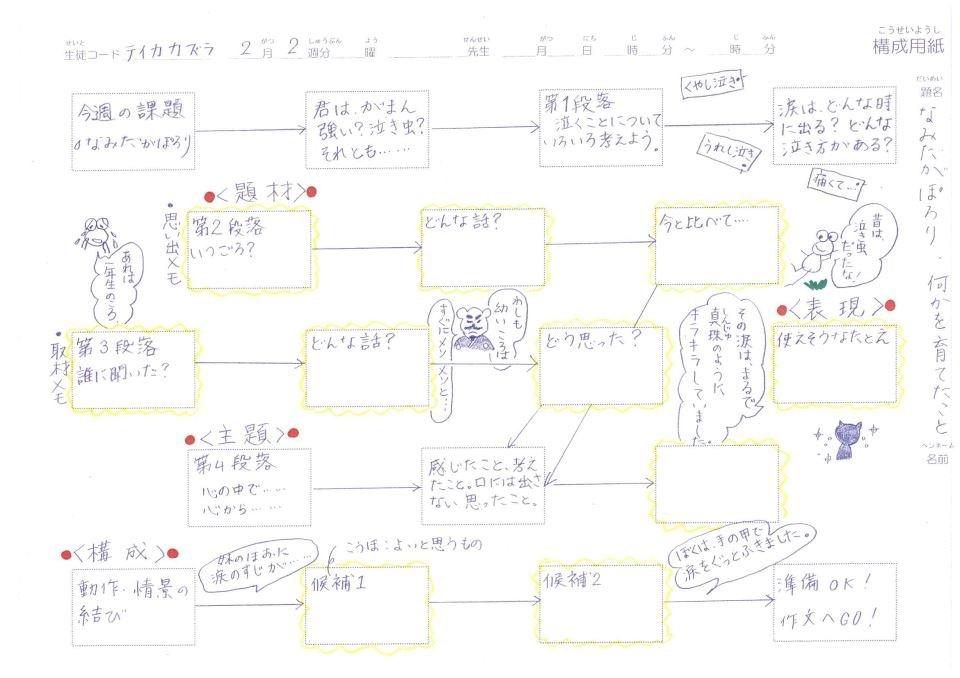 せいと
生徒コード テイカカズラ 2月 2週分 曜 先生 月 日 時 分 ～ 時 分
がつ しゅうぶん よう せんせい がつ にち じ ふん じ ふん
こうせいようし
構成用紙
だいめい
題名
なみだがぽろり・何かを育てたこと
ペンネーム
名前
今週の課題
なみだがぽろり
君は、がまん
強い？泣き虫？
それとも……
第1段落
泣くことについて
いろいろ考えよう。
くやし泣き
うれし泣き
痛くて…
涙は、どんな時
に出る？どんな
泣き方がある？
＜題材＞
・思い出メモ
第2段落
いつごろ？
どんな話？
今と比べて….
昔は、
泣き虫
だったな！
あれは
一年生のころ
・取材メモ
第3段落
誰に聞いた？
どんな話？
わしも
幼いころは
すぐにメソメソと…
どう思った？
その涙は、まるで
しんじゅ
真珠のように、
キラキラしていました。
＜表現＞
使えそうなたとえ
＜主題＞
第4段落
心の中で……
心から……
感じたこと、考え
たこと。口には出さ
ない思ったこと。
＜構成＞
動作・情景の
結び
妹のほおに
涙のすじが…
こうほ：よいと思うもの
候補1
候補2
ぼくは、手の甲で
涙をぐっとふきました。
準備OK！
作文へGO！